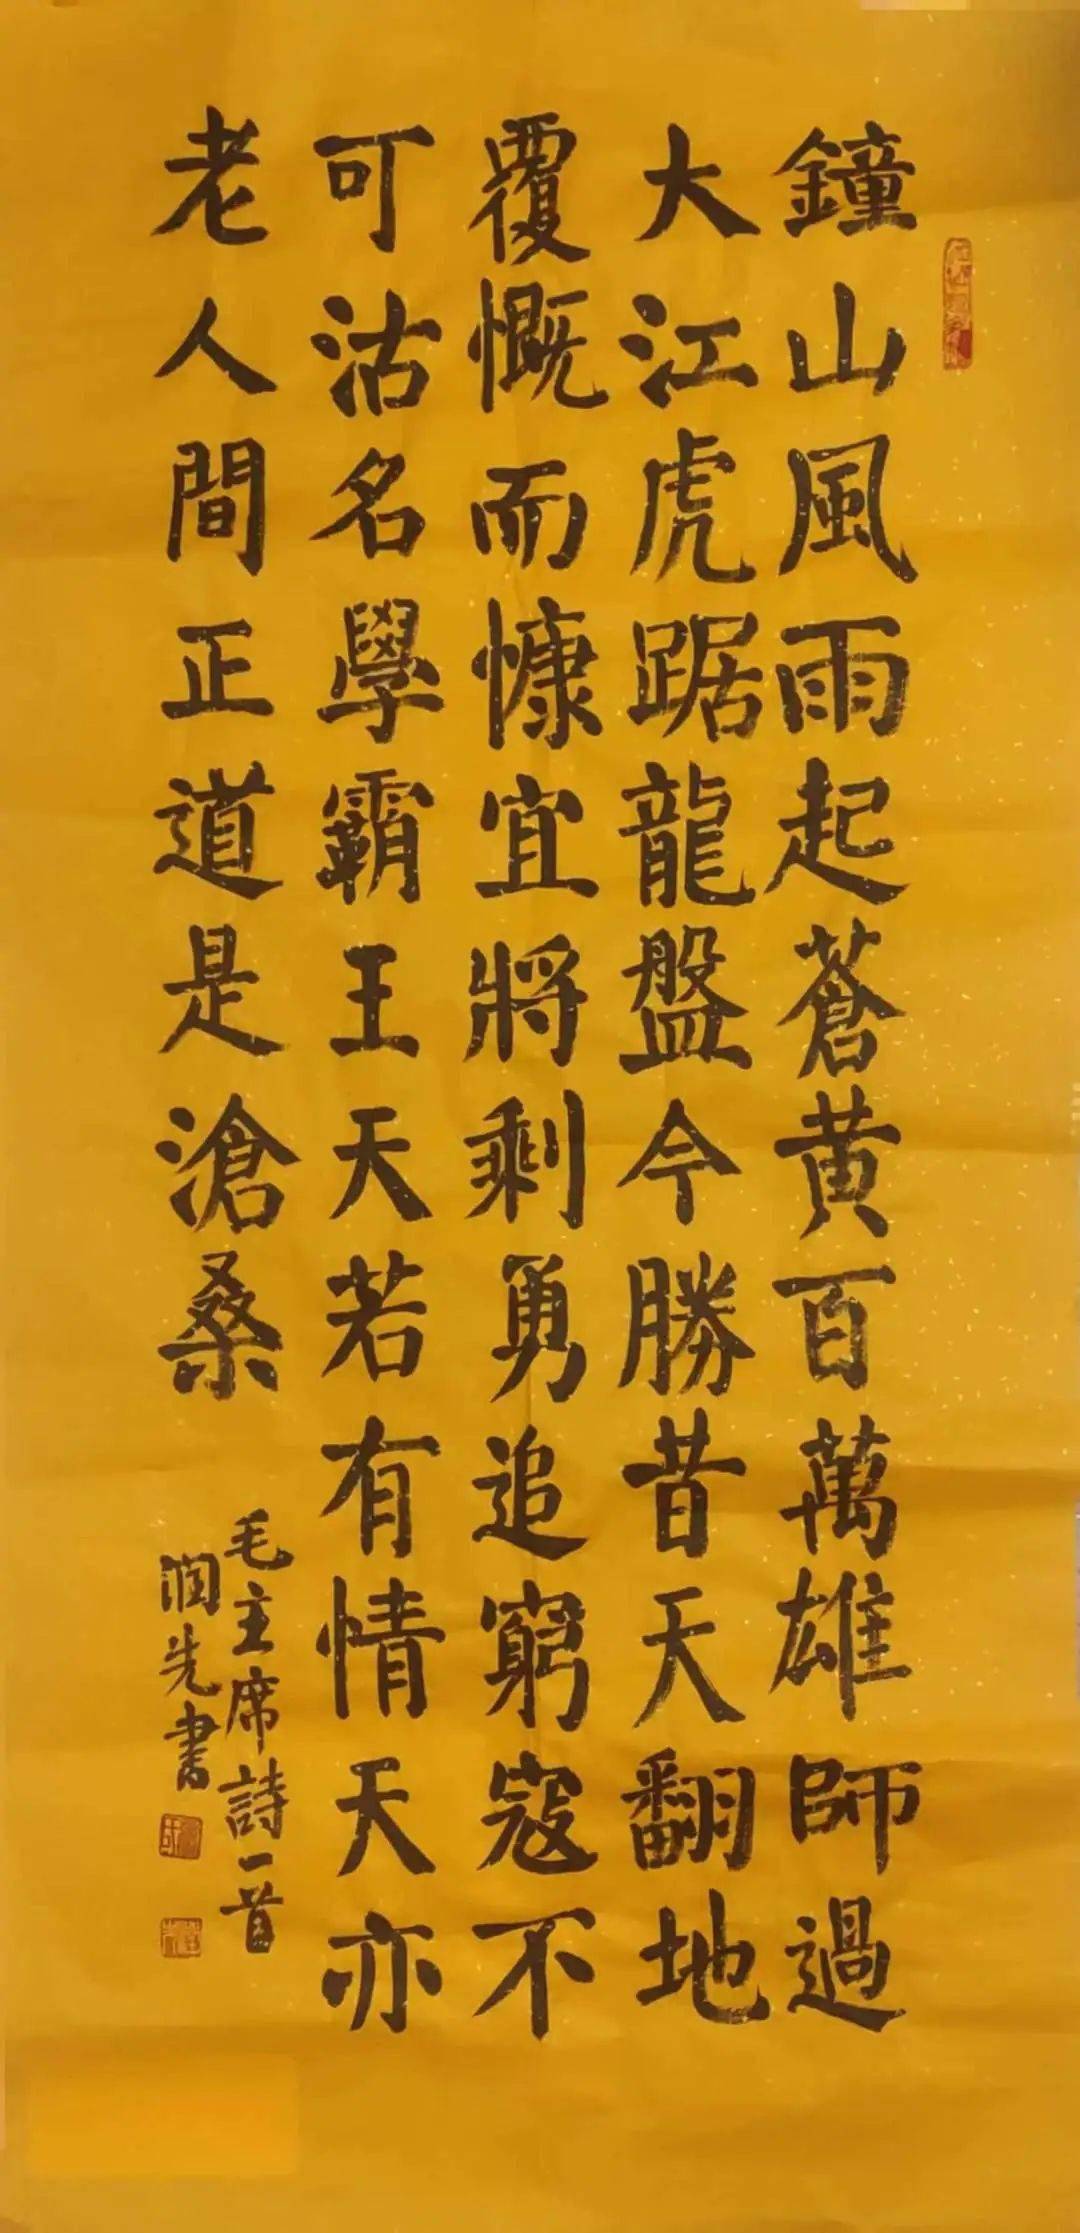 鐘山風雨起蒼黄百萬雄師過
大江虎踞龍盤今勝昔天翻地
覆慨而慷宜將剩勇追窮寇不
可沽名學霸王天若有情天亦
老人間正道是滄桑
毛主席詩一首
润先書